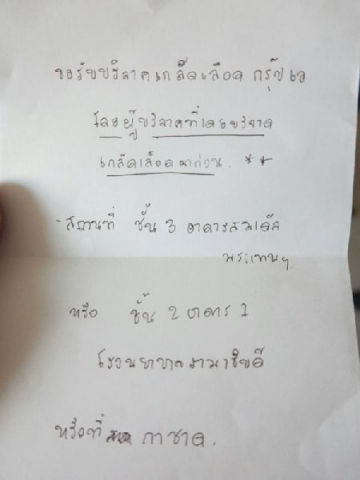 ขอรับบริจาคเกล็ดเลือด กรุ๊ปเอ
โดยผู้บริจาคที่เคยบริจาค
เกล็ดเลือดมาก่วน. **
- สถานที่ ชั้น 3 อาคารสมเด็จ
พระเทพฯ
หรือ ชั้น 2 อาคาร 1
โรงพยาบาลรามาธิบดี
หรือที่ กาชาด.